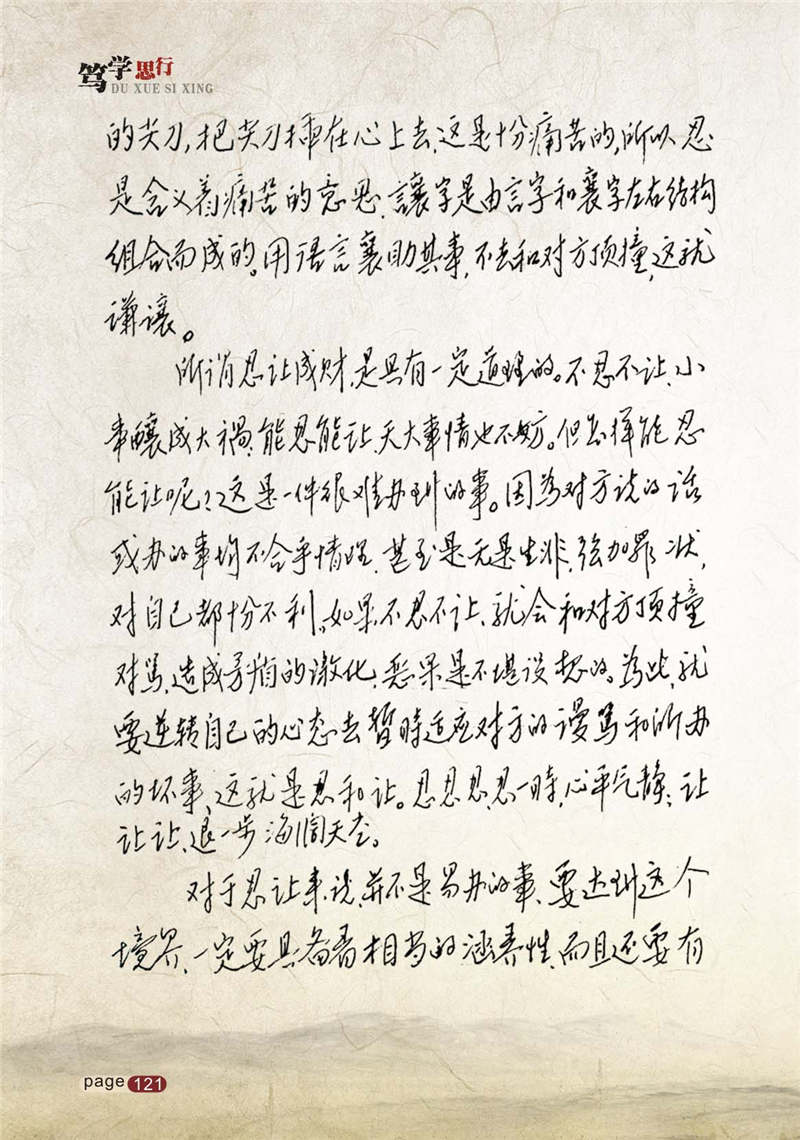 笃学思行
DU XUE SI XING
的尖刀,把尖刀插在心上去,这是十分痛苦的,所以忍
是含义着痛苦的意思,讓字是由言字和襄字左右结构
组合而成的。用语言襄助其事,不去和对方顶撞,这就
谦让。
所谓忍让成财,是具有一定道理的。不忍不让,小
事釀成大禍,能忍能让,天大事情也不妨。但怎样能忍
能让呢?这是一件很难办到的事。因为对方说的话
或办的事均不合乎情理,甚至是无是生非,强加罪状,
对自己都份不利。如果不忍不让,就会和对方顶撞
对骂,造成矛盾的激化,恶果是不堪设想的。为此,就
要逆转自己的心态去暂时适应对方的谩骂和所办
的坏事,这就是忍和让。忍忍忍,忍一时,心平气静;让
让让,退一步海阔天空。
对于忍让来说,并不是易办的事,要达到这个
境界,一定要具备着相当的涵养性,而且还要有
page 121